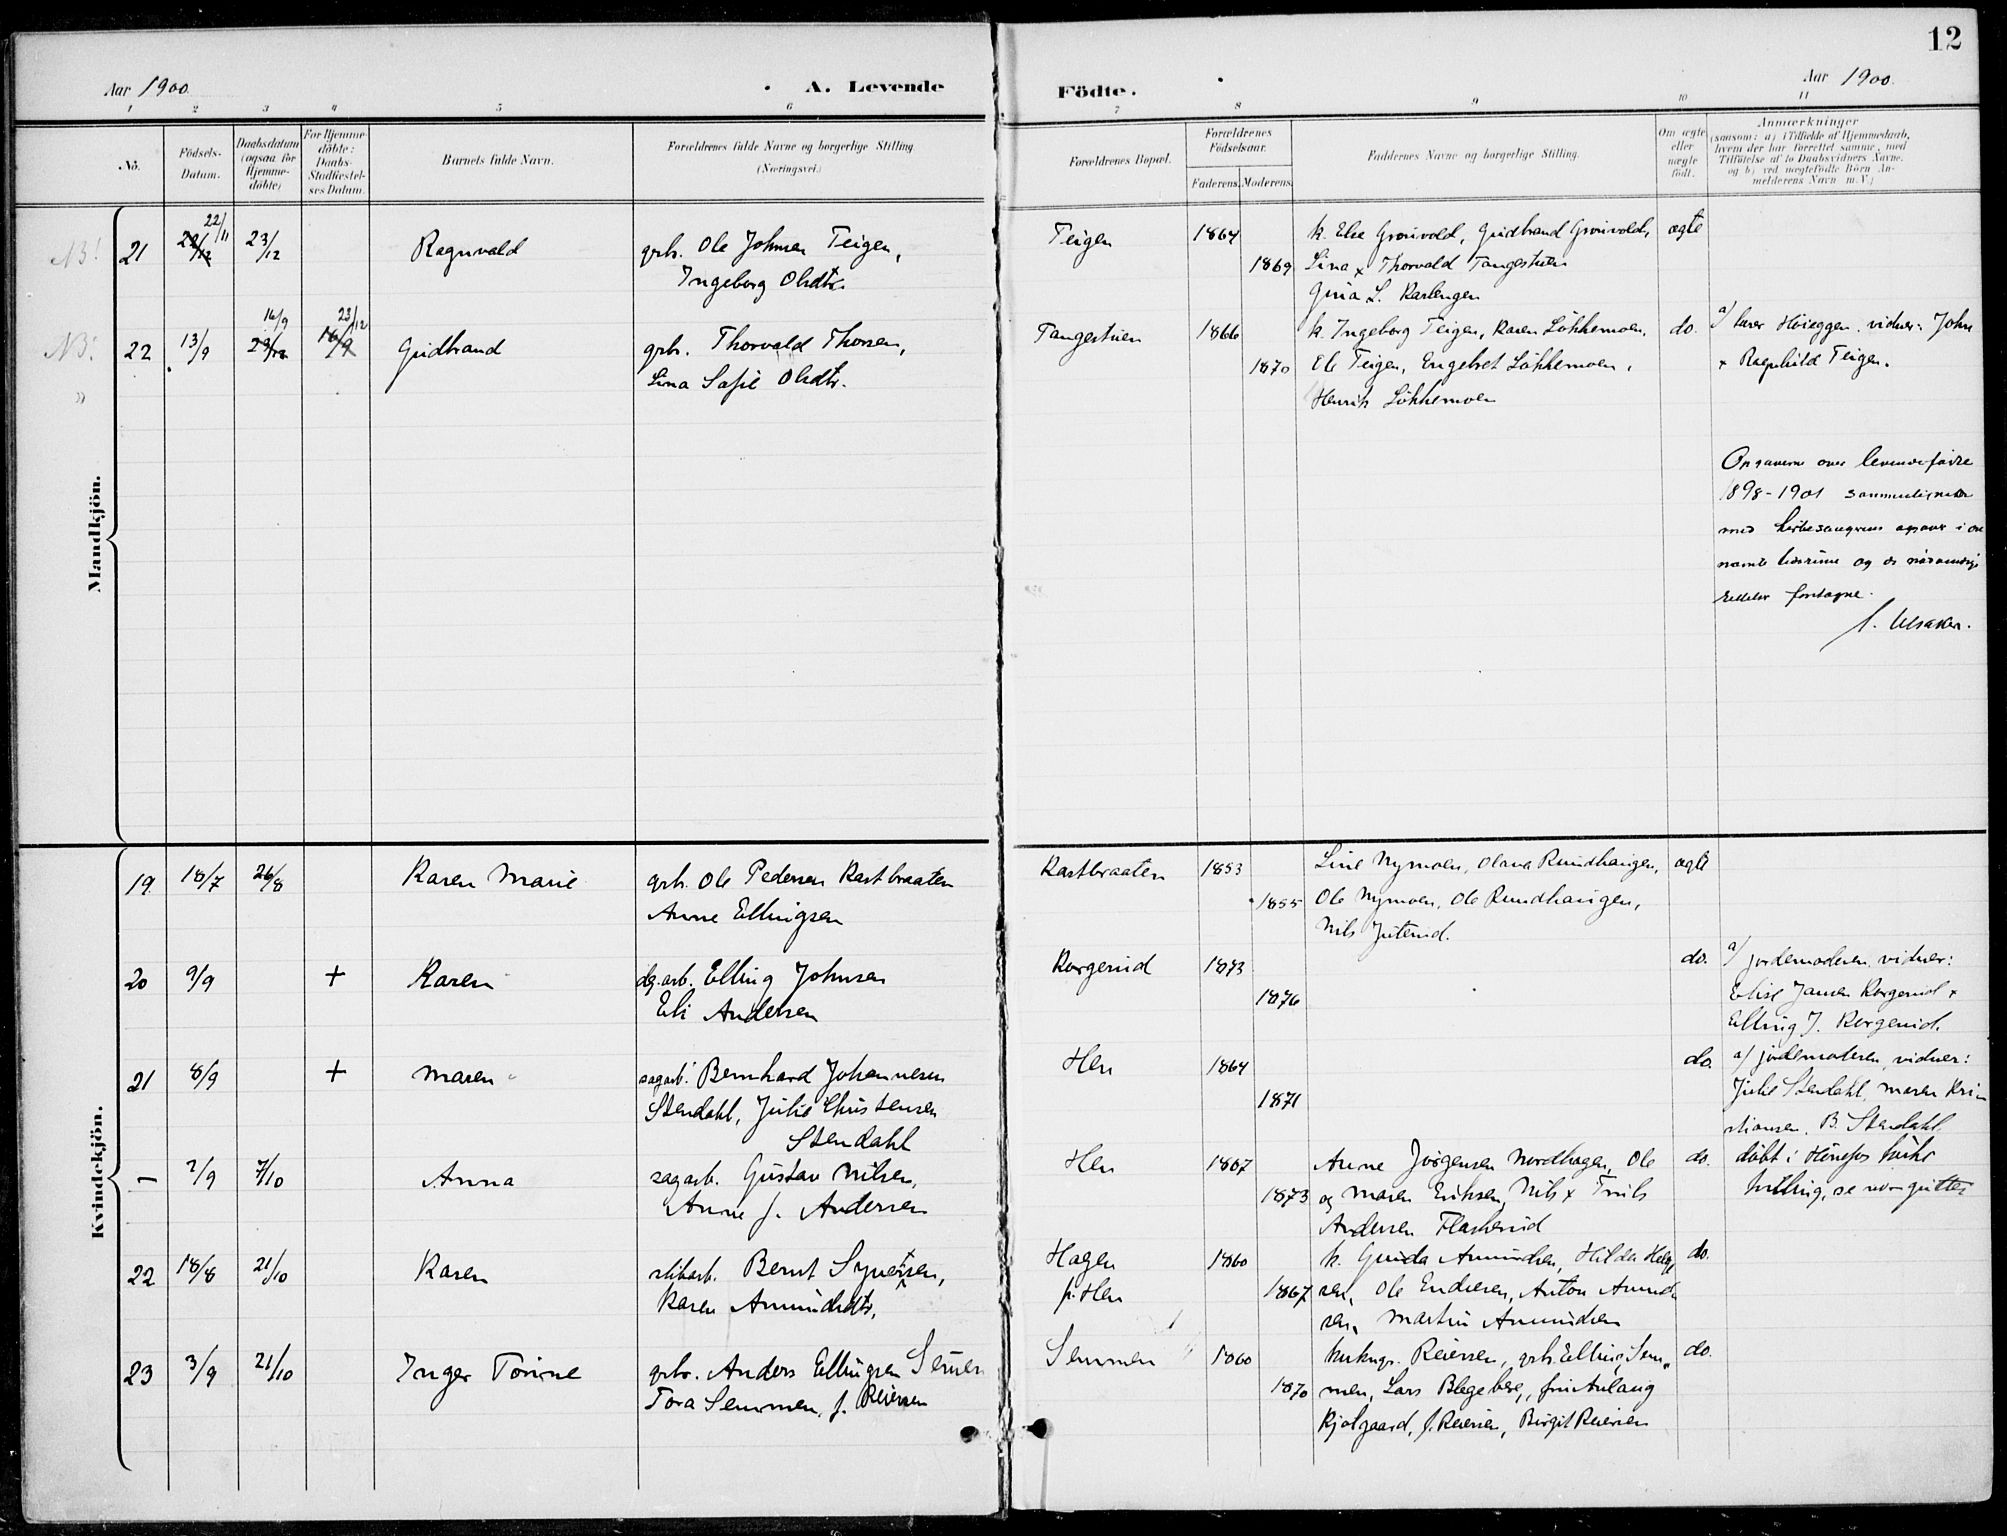 12
Aar 1900.
A. Levende
Födte.
Aar 1900.
1 2 3 4 5 6 7 8 9 10 11
No.
Födsels-
Datum.
Daabsdatum
(ogsaa for
Hjemme-
döbte)
For Hjemme-
döbte:
Daabs-
Stadfæstel-
ses Datum.
Barnets fulde Navn.
Forældrenes fulde Navne og borgerlige Stilling
(Næringsvei.)
Forældrenes Bopæl.
Forældrenes
Födselsaar.
Faderens. Moderens.
Faddernes Navne og borgerlige Stilling.
Om ægte
eller
uægte
födt.
Anmærkninger
(saasom: a) i Tilfælde af Hjemmedaab,
hvem der har forrettet samme, med
Tilföielse af to Daabsvidners Navne,
og b) ved uægtefödte Börn An-
melderens Navn m. V.)
Mandkjön.
NB! 21 22/11 23/12 Ragnvald grbr. Ole Johnsen Teigen, Teigen 1864 k. Else Grönvold, Gudbrand Grönvold, ægte
Ingeborg Olsdtr. 1869 Lina + Thorvald Tangestuen
Gina L. Karlengen
NB! 22 13/9 16/9 23/12 Gudbrand grbr. Thorvald Thorsen, Tangestuen 1866 k. Ingeborg Teigen, Karen Lökkemoen, do. a/ lærer Höieggen. vidner: John
Lina Sofie Olsdtr. 1870 Ole Teigen, Engebret Lökkemoen, + Ragnhild Teigen.
Henrik Lökkemoen
Opgaverne over levendefödte
1898-1901 sammenlignet
med
og de nödvendige
rettelser foretagne.
Kvindekjön.
19 18/7 26/8 Karen Marie grbr. Ole Pedersen Kastbraaten Kastbraaten 1853 Line Nymoen, Olava Rundhaugen, ægte
Anne Ellingsen 1855 Ole Nymoen, Ole Rundhaugen,
Nils
20 9/9 + Karen dg.arb. Elling Johnsen Korgerud 1873 do. a/ jordemoderen, vidner:
Eli Andersen 1876 Elise Jansen Korgerud +
Elling J. Korgerud.
21 8/9 + Maren sagarb. Bernhard Johannesen Hen 1864 do. a/ jordemoderen, vidner:
Stendahl, Julie Christensen 1871 Julie Stendahl, Maren Kri-
Stendahl stiansen, B. Stendahl
– 2/9 7/10 Anna sagarb. Gustav Nilsen, Hen 1867 Anne Jörgensen Nordhagen, Ole do. döbt i Hönefos kirke
Anne f. Andersen 1873 og Maren Eriksen, Nils + Emils tvilling, se gutter
Andersen Flaskerud
22 18/8 21/10 Karen slibarb. Bernt Syversen, Hagen 1860 k. Gunda Amundsen, Hilda Helge do.
Karen Amundsdtr. p. Hen 1867 sen, Ole Endresen, Anton Amund
sen, Martin Amundsen
23 3/9 21/10 Inger Torine grbr. Anders Ellingsen Semmen Semmen 1860 Reiersen, grbr. Elling Sem- do.
Tora Semmen, f. Reiersen 1870 men, Lars Blegeberg,
Kjølgaard, f. Reiersen, Birgit Reiersen